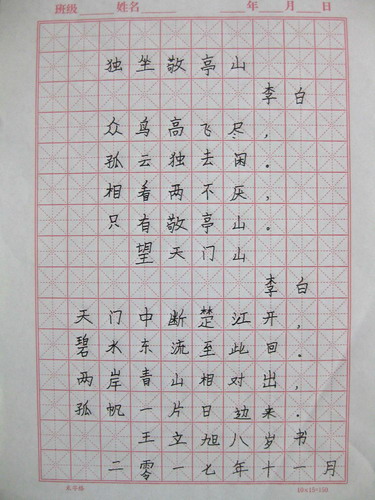 班级 姓名 年 月 日
独坐敬亭山
李白
众鸟高飞尽，
孤云独去闲。
相看两不厌，
只有敬亭山。
望天门山
李白
天门中断楚江开，
碧水东流至此回．
两岸青山相对出，
孤帆一片日边来．
王立旭八岁书
二零一七年十一月